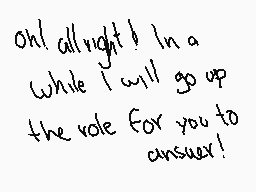 oh! all right! In a
while I will go up
the role for you to
answer!